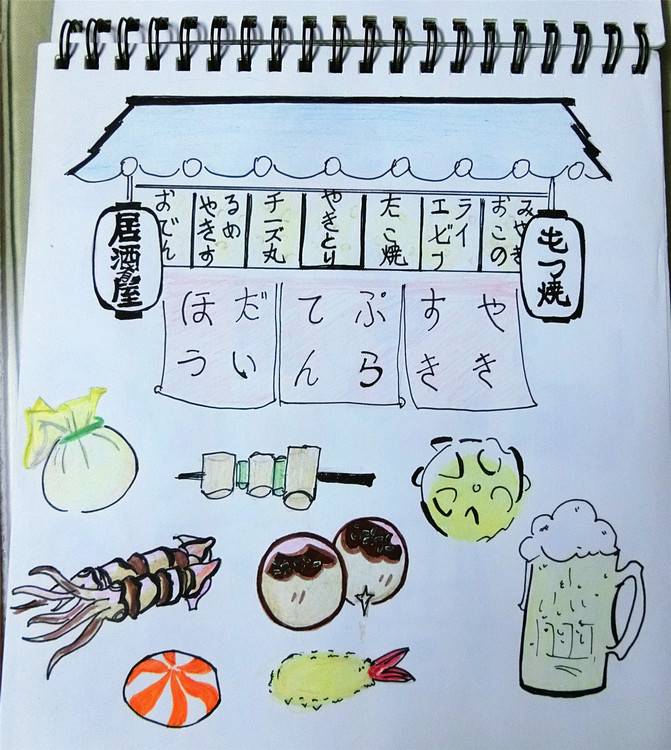 居酒屋
おでん
やきす
るめ
チーズ丸
やきとり
たこ焼
エビフ
ライ
おこの
みやき
もつ焼
ほう
だい
てん
ぷら
すき
やき